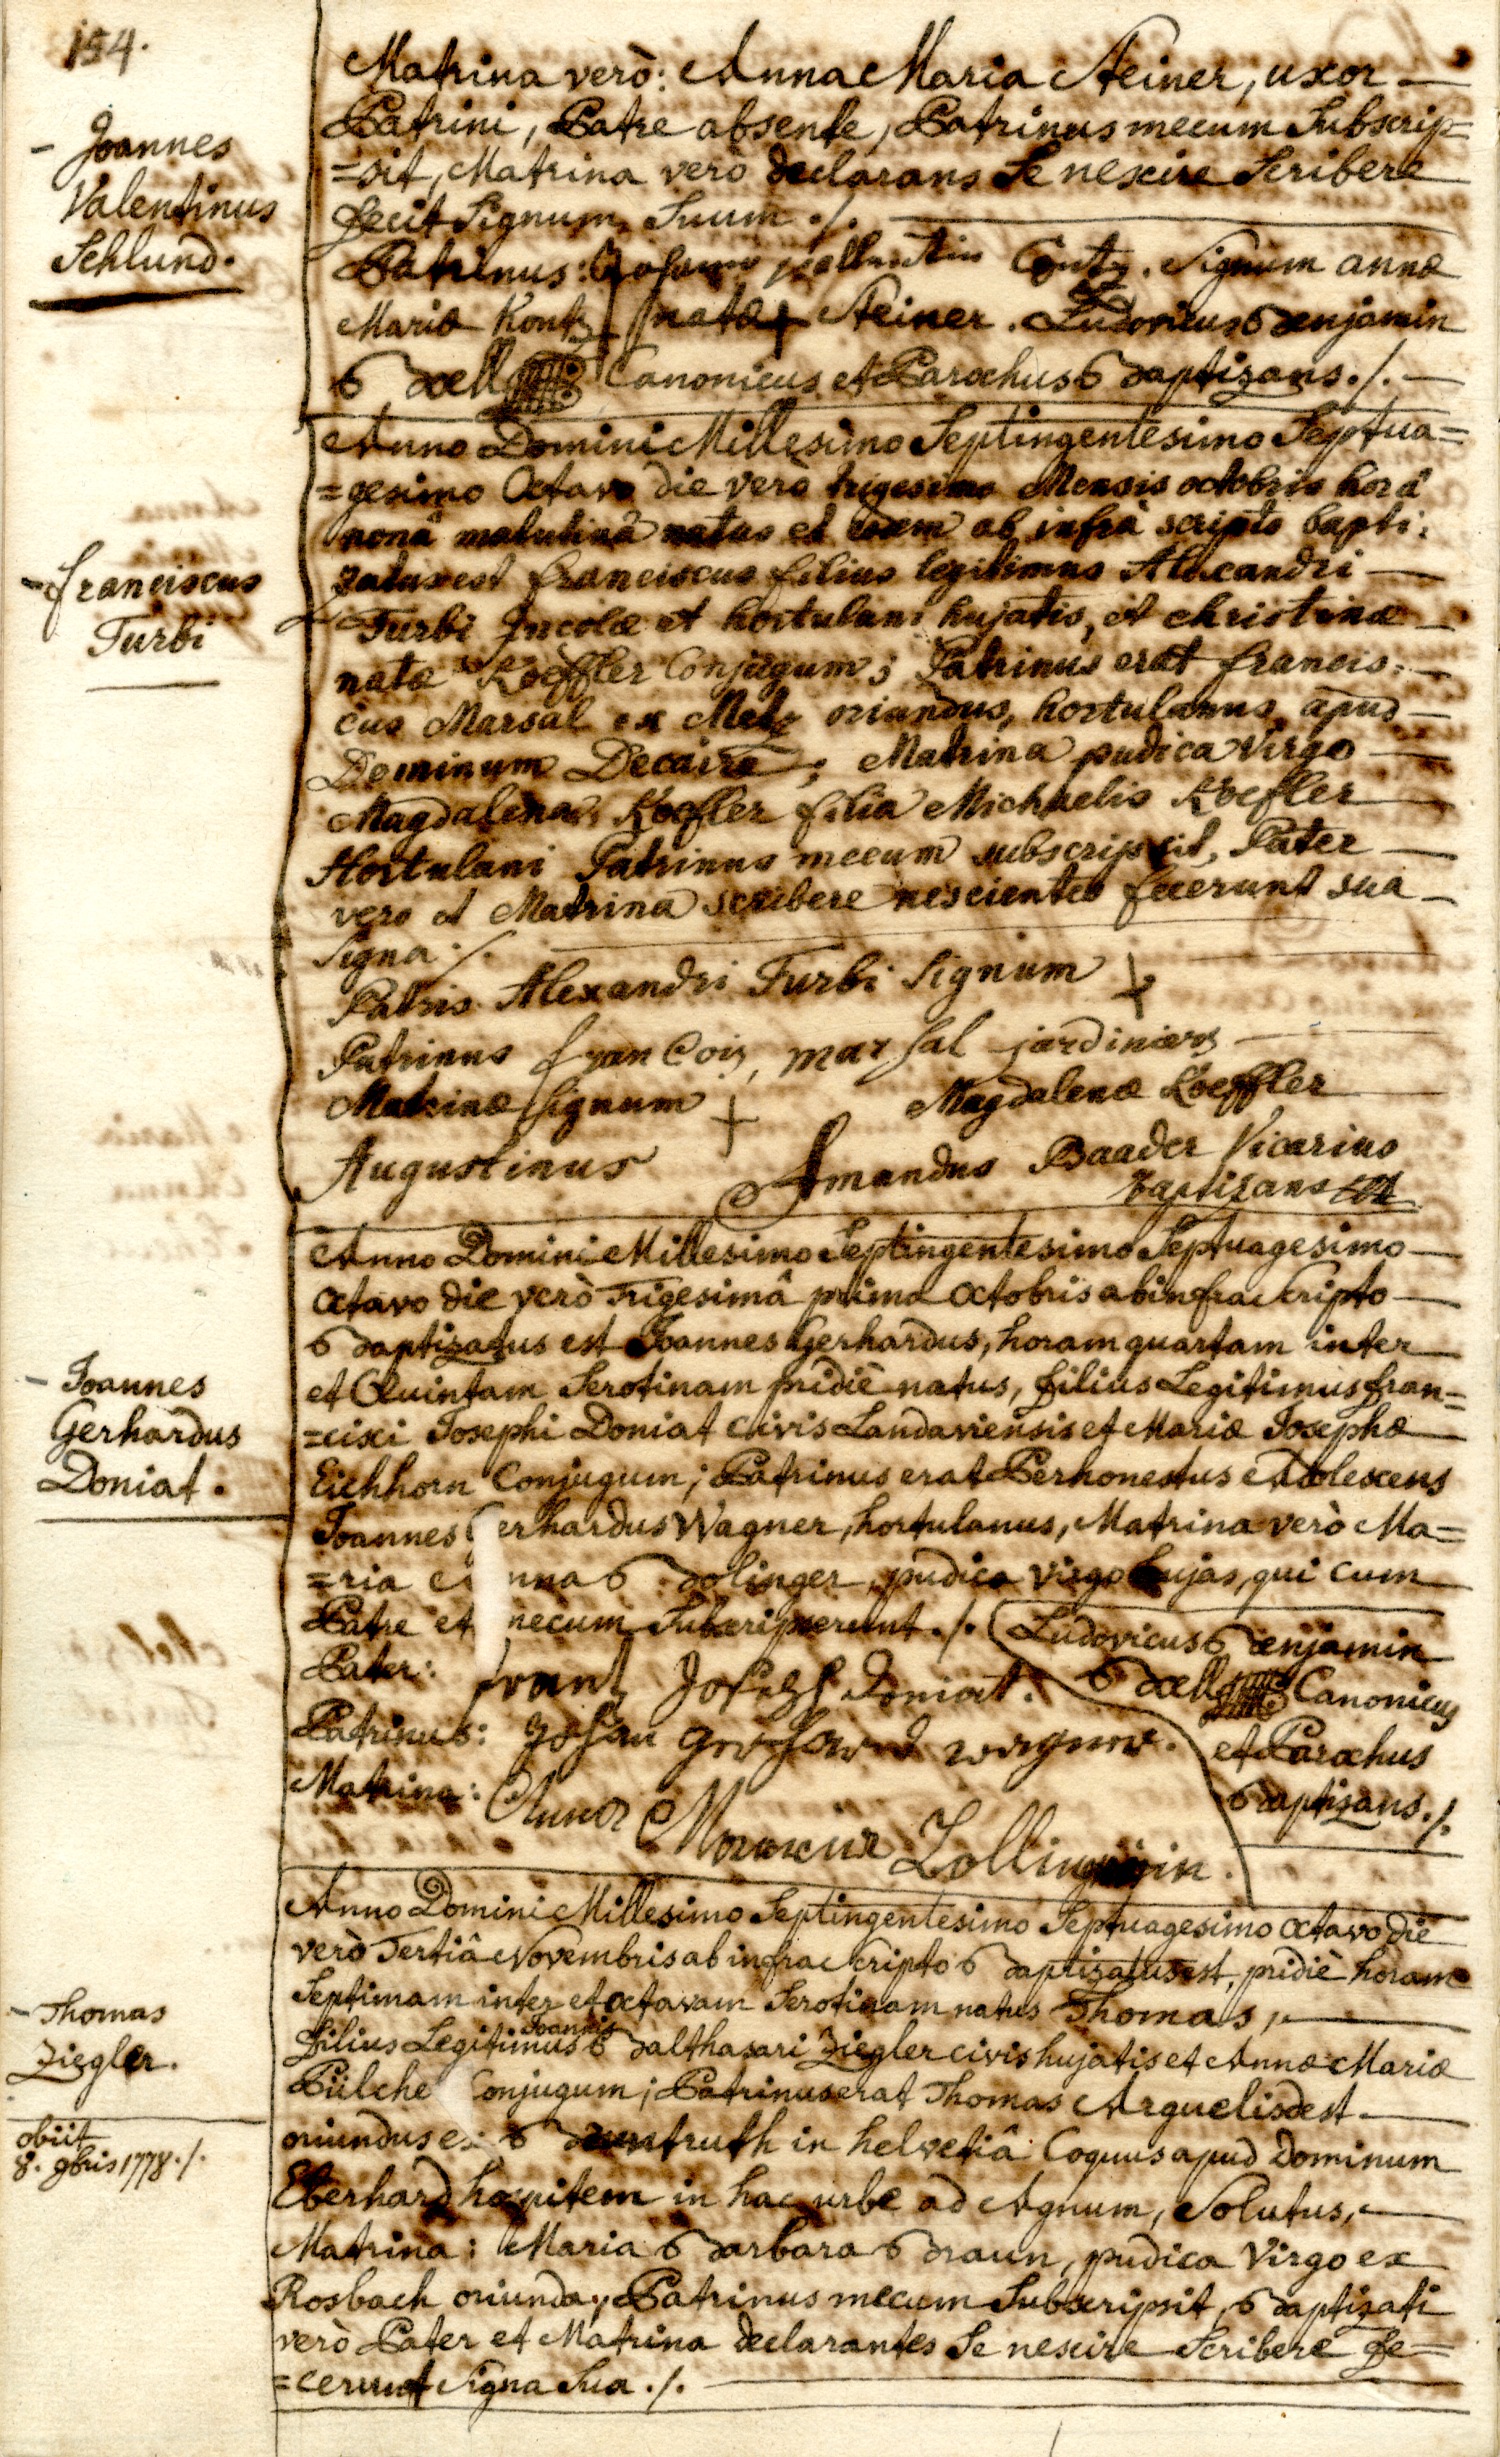 154.
- Joannes
Valentinus
Schlund.
Matrina verò: Anna Maria Steiner, uxor
Patrini, Patre absente, Patrinus mecum Subscrip=
=sit, Matrina verò declarans Se nescire Scribere
fecit Signum Suum ./.
Patrinus: Contz. Signum annæ
Mariæ Kontz natæ + Steiner. Ludovicus Benjamin
Boell Canonicus et Parochus Baptizans./.
- franciscus
Turbi
Anno Domini Millesimo Septingentesimo Septua=
=gesimo Octavo die verò trigesima Mensis octobris horâ
nonâ matutinâ natus et eodem ab infrà scripto bapti:
zatus est franciscus filius legitimus Alexandri
Turbi Incolæ et hortulani hujatis, et christinæ
natæ Koeffler Conjugum; Patrinus erat francis:
cus Marsal ex Metz oriundus, hortulanus apud
Dominum Decaire; Matrina pudica virgo
Magdalena Koefler filia Michaelis Koefler
Hortulani Patrinus mecum subscripsit, Pater
vero et Matrina scribere nescientes fecerunt sua
signa ./.
Patris Alexandri Turbi Signum +
Patrinus franCois marsal jardiniers
Matrinæ signum + Magdalenæ Koeffler
Augustinus Amandus Baader Vicarius
baptizans
- Joannes
Gerhardus
Doniat.
Anno Domini Millesimo Septingentesimo Septuagesimo
Octavo die verò Trigesimâ primâ Octobris ab infra Scripto
Baptizatus est Joannes Gerhardus, horam quartam inter
et Quintam Serotinam pridiè natus, filius Legitimus fran=
=cisci Josephi Doniat civis Landaviensis et Mariæ Josephæ
Eichhorn Conjugum; Patrinus erat Perhonestus Adolescens
Joannes Gerhardus Wagner, hortulanus, Matrina verò Ma=
=ria Anna Bolinger, pudica virgo hujas, qui cum
Patre et mecum Subscripserunt ./. Ludovicus Benjamin
Boell Canonicus
et Parochus
Baptizans./.
Pater: frantz Joseph Doniat.
Patrinus: Johan Gerhard wagner.
Matrina: Anna Maria Zollingerin.
- Thomas
Ziegler.
obiit
8. 9bris 1778./.
Anno Domini Millesimo Septingentesimo Septuagesimo Octavo die
verò Tertiâ Novembris ab infra Scripto Baptizatus est, pridiè horam
Septimam inter et octavam Serotinam natus Thomas,
filius Legitimus Joannis Balthasari Ziegler civis hujatis et Annæ Mariæ
Pülche Conjugum; Patrinus erat Thomas Arguelisdest
oriundus ex Bruntruth in helvetiâ Coquus apud Dominum
Eberhard hospitem in hac urbe ad Agnum, Solutus,
Matrina: Maria Barbara Braun, pudica Virgo ex
Rosbach oriunda, Patrinus mecum Subscripsit, Baptizati
verò Pater et Matrina declarantes Se nescire Scribere fe=
=cerunt Signa Sua ./.